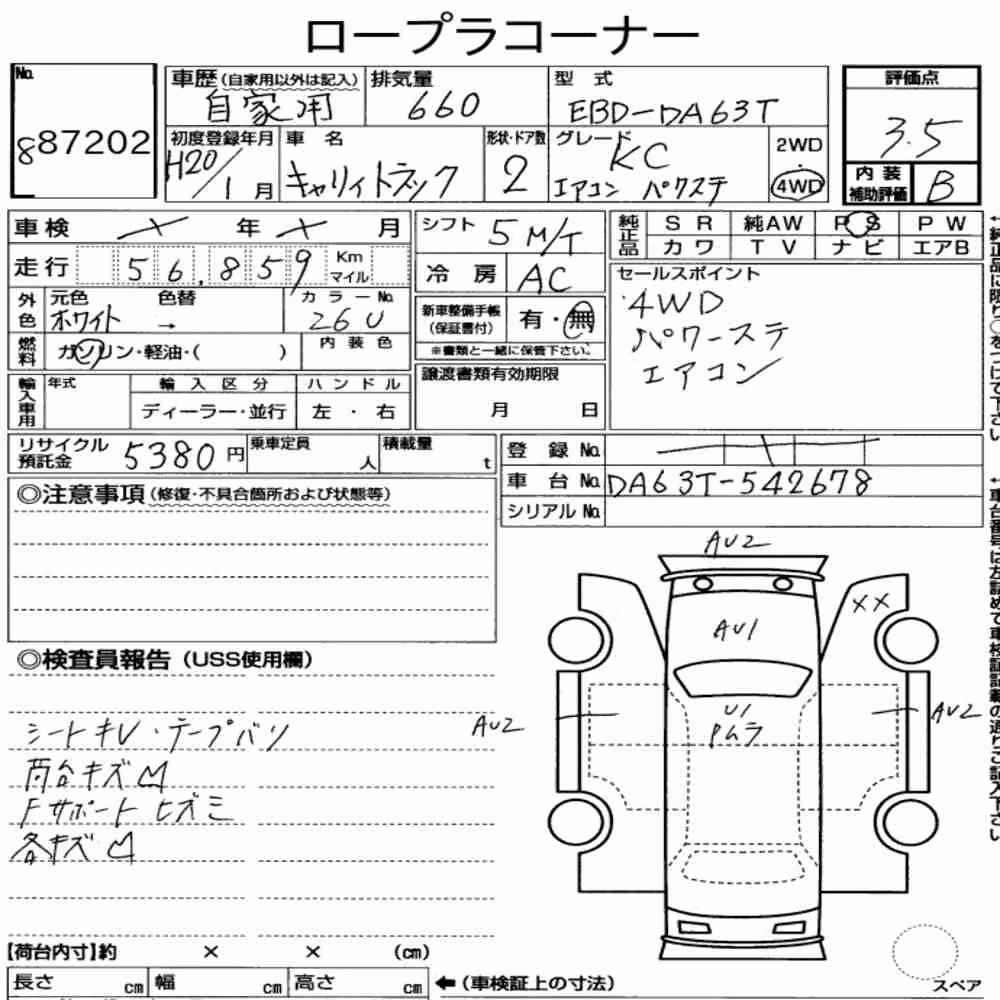 ロープラコーナー
No.
887202
車歴(自家用以外は記入)
自家用
排気量
660
型 式
EBD-DA63T
評価点
3.5
初度登録年月
H20/1月
車 名
キャリィトラック
形状・ドア数
2
グレード
KC
エアコン パワステ
2WD
・
4WD
内装
補助評価
B
車検 年 月
走行 56,859 Km
マイル
外色
元色 色替
ホワイト →
カラーNo.
26U
燃料
ガソリン・軽油・( )
内装色
輸入車用
年式
輸入区分
ディーラー・並行
ハンドル
左 ・ 右
シフト 5M/T
冷 房 AC
新車整備手帳
(保証書付)
有・無
※書類と一緒に保管下さい。
譲渡書類有効期限
月 日
純正品
SR 純AW PS PW
カワ TV ナビ エアB
セールスポイント
4WD
パワーステ
エアコン
←純正品に限り○をつけて下さい
リサイクル
預託金
5380円
乗車定員
人
積載量
t
登 録 No.
車 台 No. DA63T-542678
シリアル No.
←車台番号は左詰めで車検証記載の通りご記入下さい
◎注意事項(修復・不具合箇所および状態等)
◎検査員報告(USS使用欄)
シートキレ・テープバリ
荷台キズ凹
Fサポート ヒズミ
各キズ凹
AU2
AU1
XX
U1
Pムラ
AU2
AU2
【荷台内寸】約 × × (cm)
長さ cm 幅 cm 高さ cm
←(車検証上の寸法)
スペア